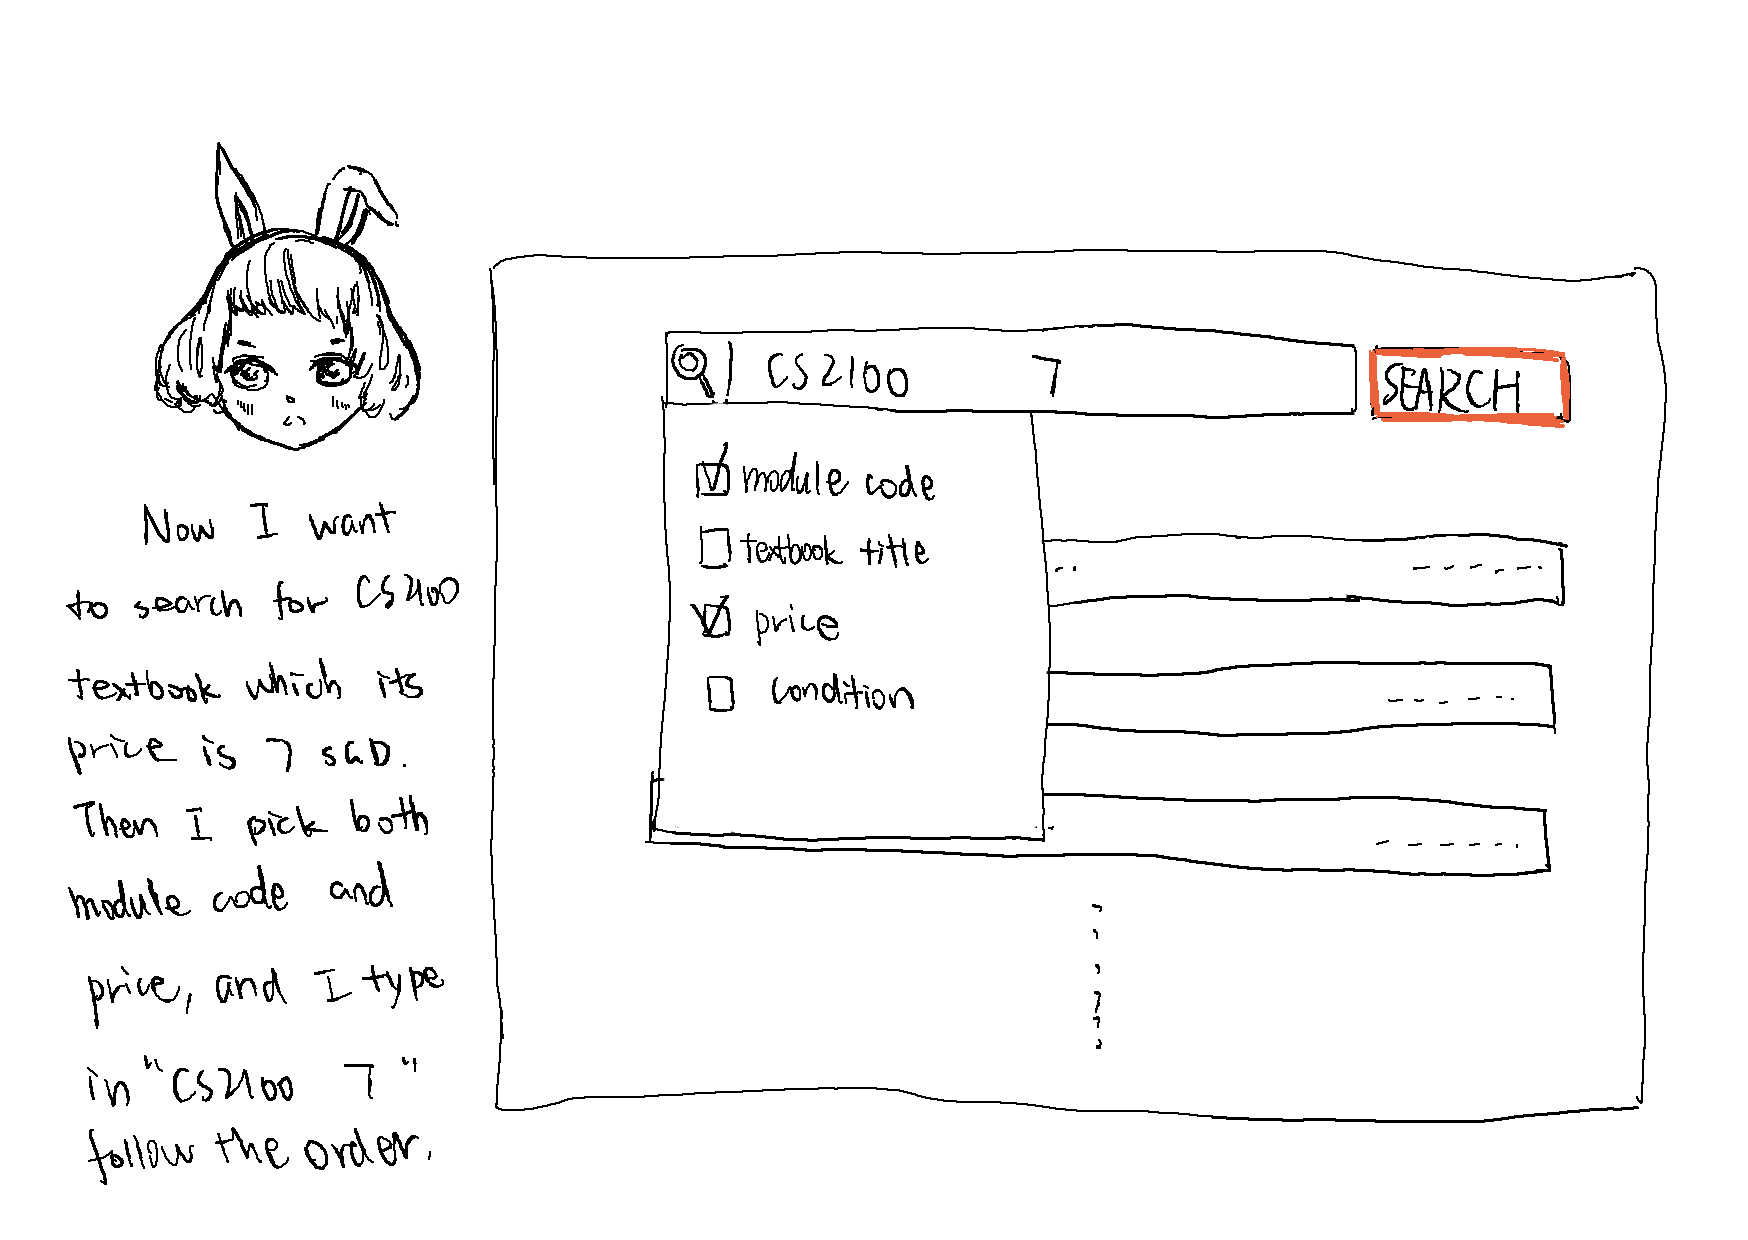 Now I want
to search for CS2100
textbook which its
price is 7 SGD.
Then I pick both
module code and
price, and I type
in "CS2100 7"
follow the order.
CS2100 7
SEARCH
module code
textbook title
price
condition